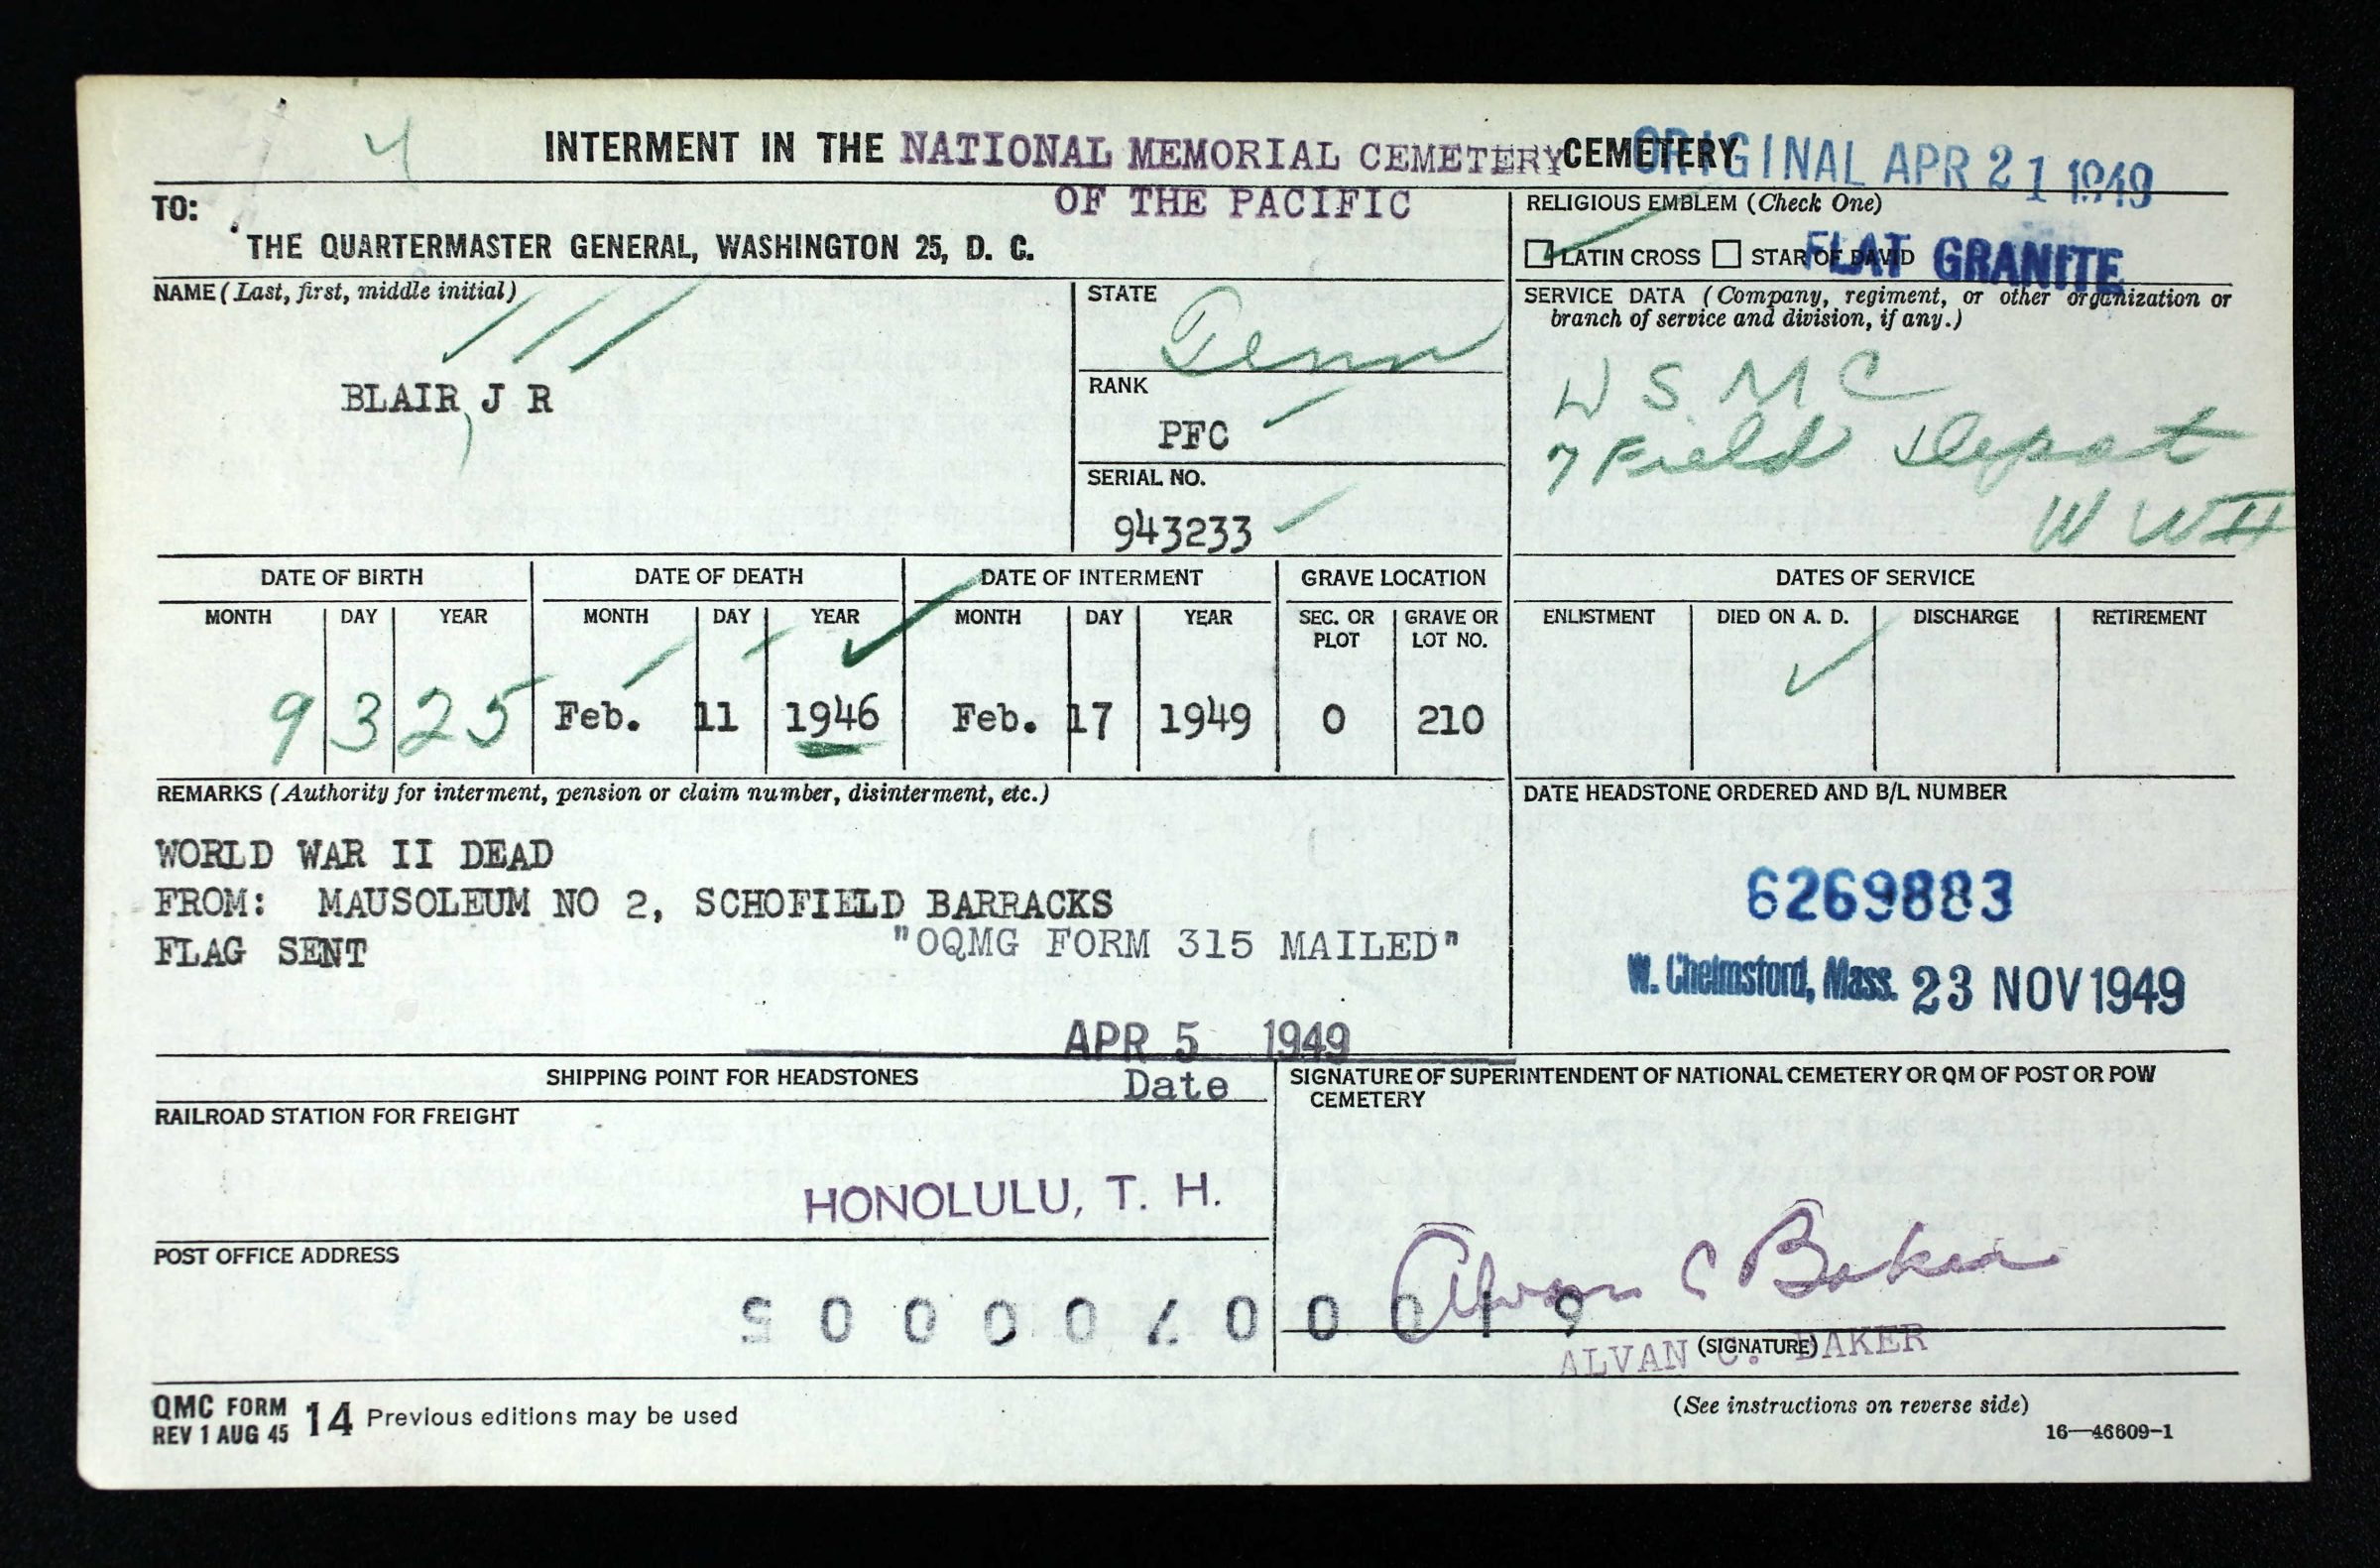 4
INTERMENT IN THE NATIONAL MEMORIAL CEMETERY CEMETERY ORIGINAL APR 21 1949
OF THE PACIFIC
TO:
THE QUARTERMASTER GENERAL, WASHINGTON 25, D. C.
RELIGIOUS EMBLEM (Check One)
LATIN CROSS STAR OF DAVID
FLAT GRANITE
NAME (Last, first, middle initial)
BLAIR, J R
STATE
Tenn
RANK
PFC
SERIAL NO.
943233
SERVICE DATA (Company, regiment, or other organization or
branch of service and division, if any.)
U S M C
7 Field Depot
W W II
DATE OF BIRTH
MONTH DAY YEAR
9 3 25
DATE OF DEATH
MONTH DAY YEAR
Feb. 11 1946
DATE OF INTERMENT
MONTH DAY YEAR
Feb. 17 1949
GRAVE LOCATION
SEC. OR PLOT GRAVE OR LOT NO.
O 210
DATES OF SERVICE
ENLISTMENT DIED ON A. D. DISCHARGE RETIREMENT
REMARKS (Authority for interment, pension or claim number, disinterment, etc.)
WORLD WAR II DEAD
FROM: MAUSOLEUM NO 2, SCHOFIELD BARRACKS
FLAG SENT "OQMG FORM 315 MAILED"
APR 5 1949
Date
DATE HEADSTONE ORDERED AND B/L NUMBER
6269883
W. Chelmsford, Mass. 23 NOV 1949
SHIPPING POINT FOR HEADSTONES
RAILROAD STATION FOR FREIGHT
HONOLULU, T. H.
POST OFFICE ADDRESS
SIGNATURE OF SUPERINTENDENT OF NATIONAL CEMETERY OR QM OF POST OR POW
CEMETERY
Alvan C Baker
(SIGNATURE)
ALVAN C. BAKER
QMC FORM 14 Previous editions may be used
REV 1 AUG 45
(See instructions on reverse side)
16—46609-1